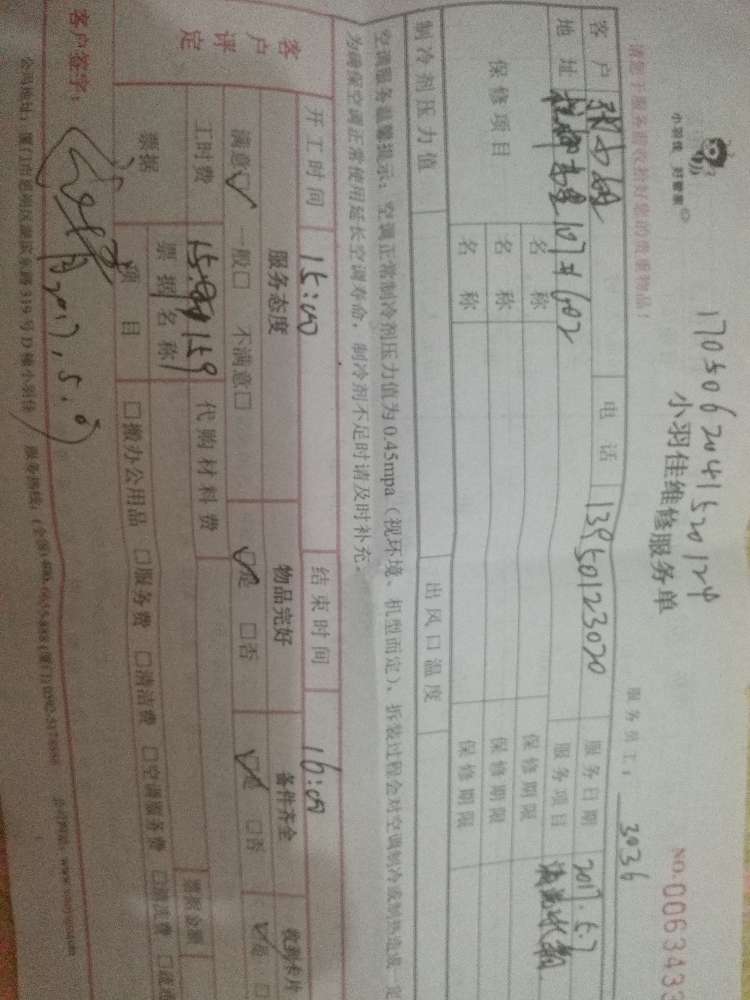 小羽佳 好管家
1705062041520124
小羽佳维修服务单
NO.0063433
请您于服务前收拾好您的贵重物品!
服务员工: 3036
客户 电话 13950123020 服务日期 2017.5.7
地址 107# 602 服务项目
保修项目 名称 保修期限
名称 保修期限
名称 保修期限
制冷剂压力值 出风口温度
空调服务温馨提示:空调正常制冷剂压力值为0.45mpa(视环境、机型而定)、拆装过程会对空调制冷或制热造成
为确保空调正常使用延长空调寿命,制冷剂不足时请及时补充。
开工时间 15:00 结束时间 16:00
客户评定 服务态度 物品完好 备件齐全 收到卡片
满意☑ 一般□ 不满意□ ☑是 □否 ☑是 □否 ☑是 □
工时费 159 代购材料费
票据 票据名称 票据金额
项目 □搬办公用品 □服务费 □清洁费 □空调服务费 □清洗费
客户签字: 2017.5.
公司地址:厦门市思明区湖滨东路319号D栋小羽佳 服务热线:(全国)